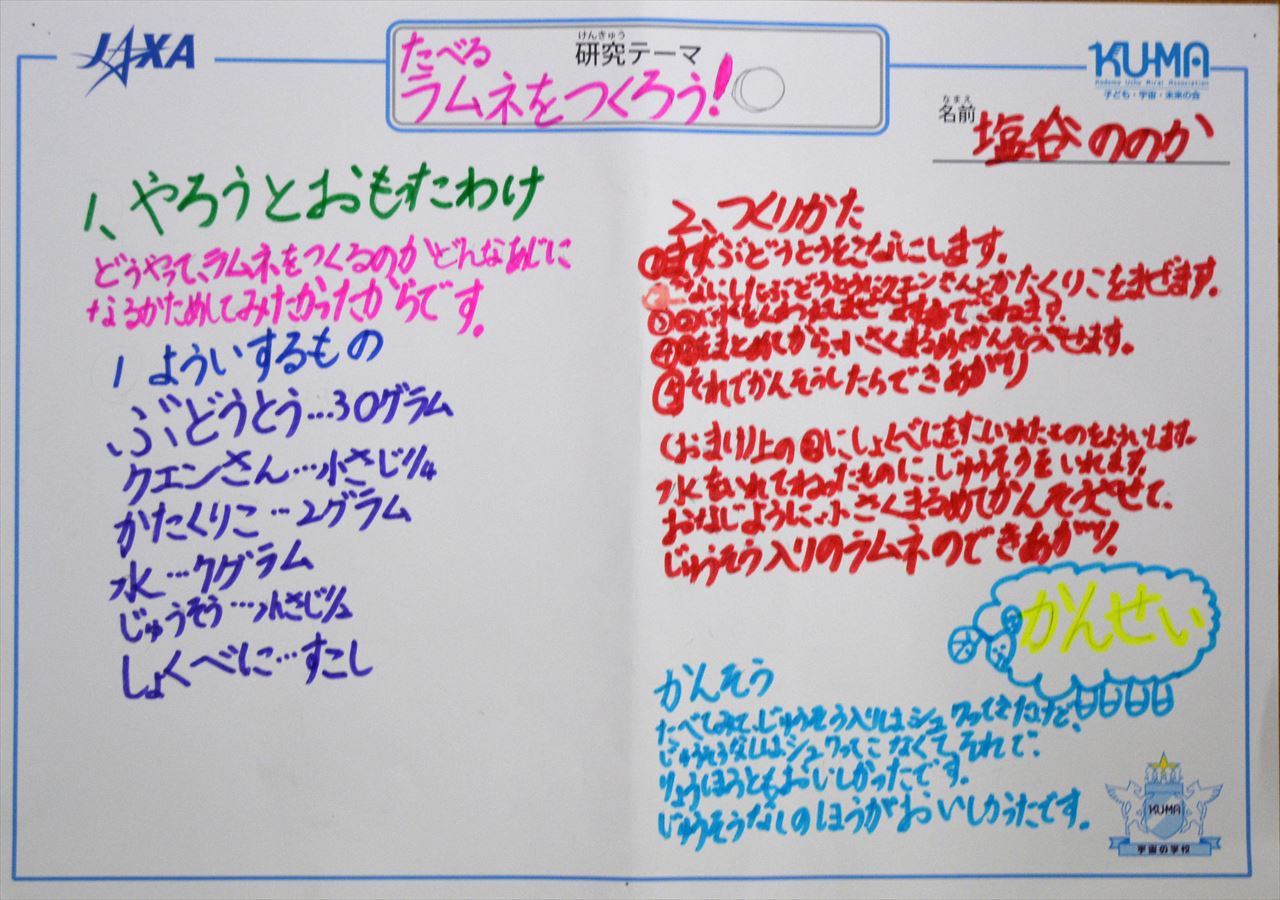 JAXA
けんきゅう
研究テーマ
たべる
ラムネをつくろう!
KUMA
Kodomo Uchu Mirai Association
子ども・宇宙・未来の会
なまえ
名前
塩谷ののか
1、やろうとおもったわけ
どうやって、ラムネをつくるのかどんなあじに
なるかためしてみたかったからです。
1 よういするもの
ぶどうとう…30グラム
クエンさん…小さじ1/4
かたくりこ…2グラム
水…7グラム
じゅうそう…小さじ1/2
しょくべに…すこし
2、つくりかた
①まずぶどうとうをこなにします。
②こなにしたぶどうとうとクエンさんとかたくりこをまぜます。
③に水を まぜ こねます。
④をまとめてから、小さくまるめかんそうさせます。
⑤それでかんそうしたらできあがり
(おまけ)上の②にしょくべにをすこしいれたものをよういします。
水をいれてねったものに、じゅうそうをいれます。
おなじように、小さくまるめてかんそうさせて、
じゅうそう入りのラムネのできあがり。
かんせい
かんそう
たべてみて、じゅうそう入りはシュワってきたけど、
じゅうそうなしはシュワってこなくて、それで、
りょうほうともおいしかったです。
じゅうそうなしのほうがおいしかったです。
KUMA
宇宙の学校